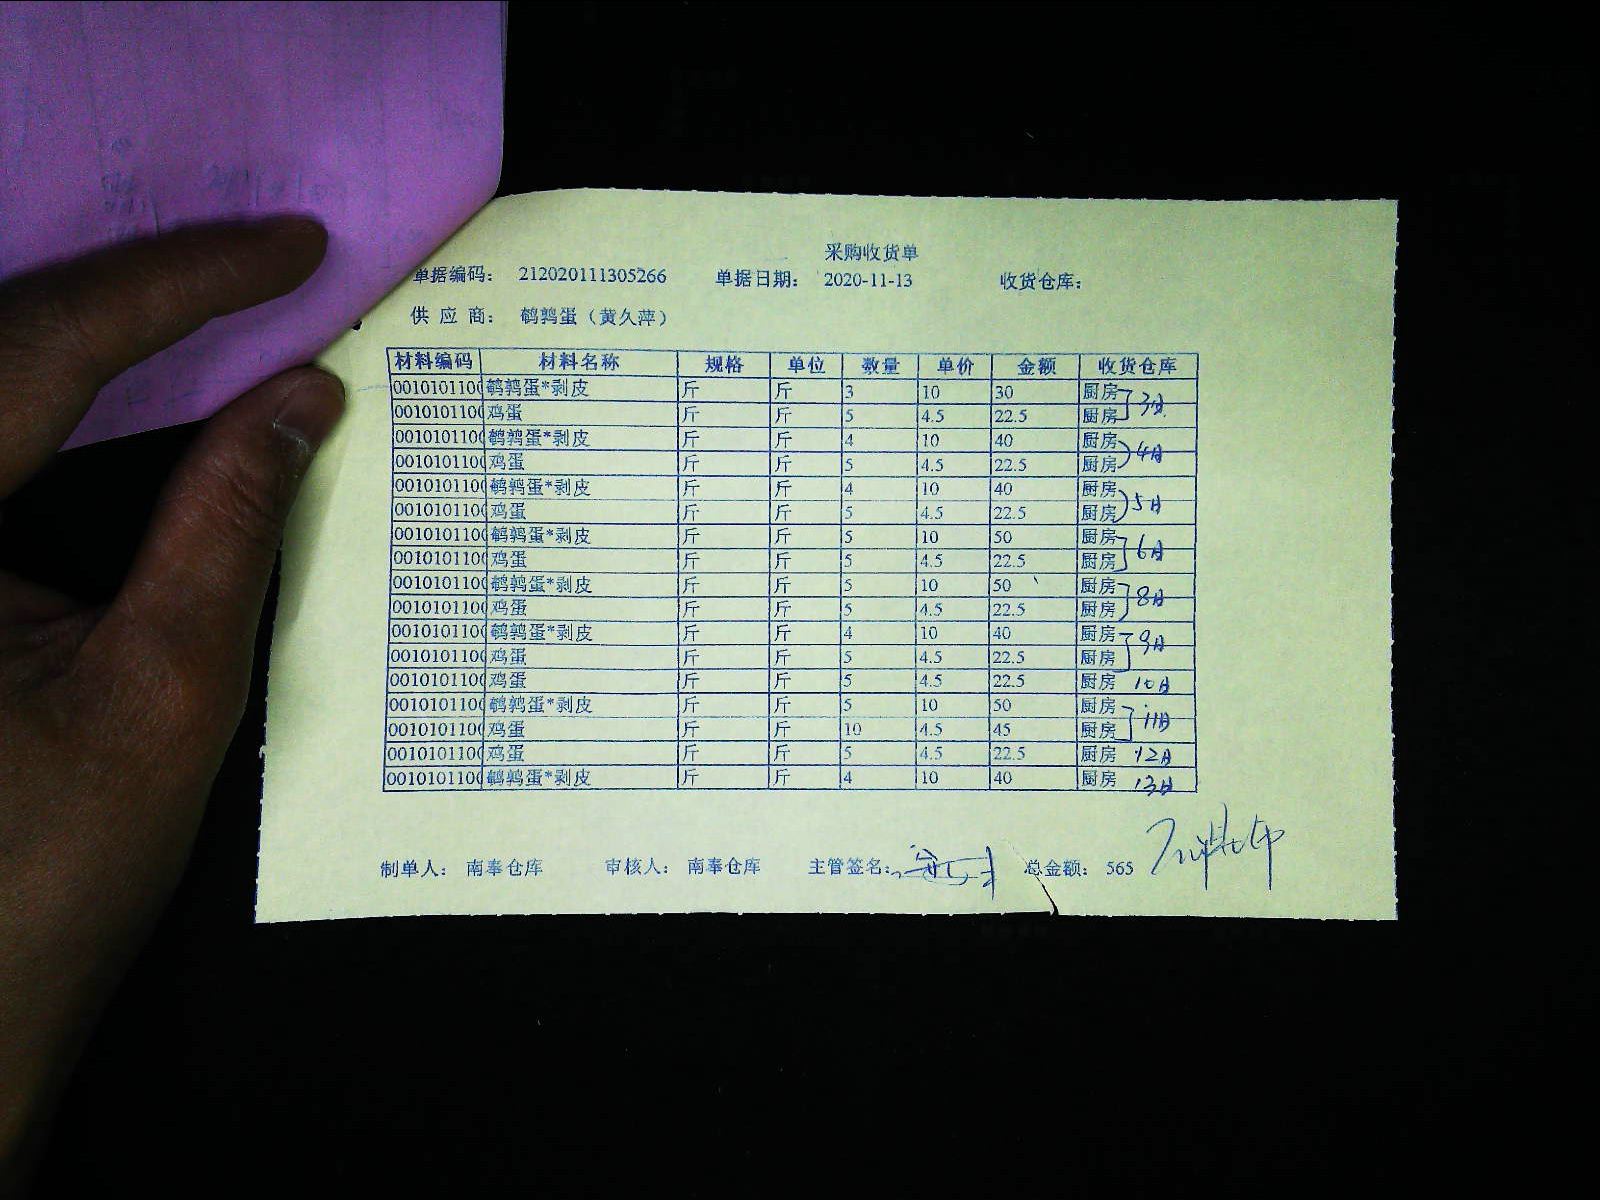 采购收货单
单据编码： 212020111305266 单据日期： 2020-11-13 收货仓库：
供 应 商： 鹌鹑蛋（黄久萍）
材料编码 材料名称 规格 单位 数量 单价 金额 收货仓库
0010101100 鹌鹑蛋*剥皮 斤 斤 3 10 30 厨房
0010101100 鸡蛋 斤 斤 5 4.5 22.5 厨房 3日
0010101100 鹌鹑蛋*剥皮 斤 斤 4 10 40 厨房
0010101100 鸡蛋 斤 斤 5 4.5 22.5 厨房 4日
0010101100 鹌鹑蛋*剥皮 斤 斤 4 10 40 厨房
0010101100 鸡蛋 斤 斤 5 4.5 22.5 厨房 5日
0010101100 鹌鹑蛋*剥皮 斤 斤 5 10 50 厨房
0010101100 鸡蛋 斤 斤 5 4.5 22.5 厨房 6日
0010101100 鹌鹑蛋*剥皮 斤 斤 5 10 50 厨房
0010101100 鸡蛋 斤 斤 5 4.5 22.5 厨房 8日
0010101100 鹌鹑蛋*剥皮 斤 斤 4 10 40 厨房
0010101100 鸡蛋 斤 斤 5 4.5 22.5 厨房 9日
0010101100 鸡蛋 斤 斤 5 4.5 22.5 厨房 10日
0010101100 鹌鹑蛋*剥皮 斤 斤 5 10 50 厨房
0010101100 鸡蛋 斤 斤 10 4.5 45 厨房 11日
0010101100 鸡蛋 斤 斤 5 4.5 22.5 厨房 12日
0010101100 鹌鹑蛋*剥皮 斤 斤 4 10 40 厨房 13日
制单人： 南奉仓库 审核人： 南奉仓库 主管签名： 总金额： 565